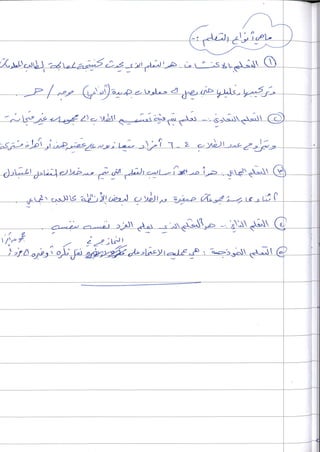 ما هي أنواع التعلم :-
① التعلم بالاكتشاف .. هو التعلم الذي يحدث كنتيجة لمعالجة الطالب المعلومات
وتركيبها وتحليلها حتى يصل إلى معلومات جديدة (أنواعها) موجه / حر
② التعلم التعاوني .. تعلم يتم فيه تقسيم الطلاب إلى مجموعات غير متجانسة
ويتراوح عدد الطلاب ٤ - ٦ أفراد
③ التعلم الجماعي .. هو أحد أساليب التعلم التي تتم من خلال التفاعل المتبادل
أثناء ممارسة مجموعات صغيرة من الطلاب لبعض الأنشطة كاللعب الجماعي
④ التعلم الذاتي .. هو التعلم الذي يعلم الفرد نفسه بنفسه
⑤ التعلم النموذجة : هي عملية الاعتماد على النماذج في نقل فكرة أو خبرة